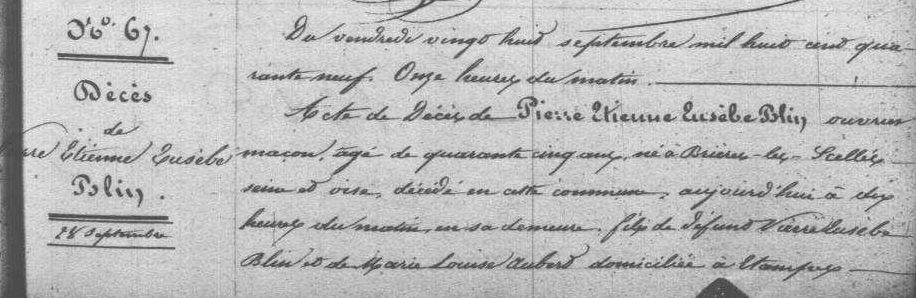 N°. 67.
Décès
de
rre Etienne Eusèbe
Blin.
28 Septembre
Du vendredi vingt huit septembre mil huit cent qua-
rante neuf. Onze heures du matin.
Acte de Décès de Pierre Etienne Eusèbe Blin, ouvrier
maçon, agé de quarante cinq ans, né à Brières-les-Scellés
seine et oise, décédé en cette commune, aujourd'hui à dix
heures du matin, en sa demeure. fils de défunt Pierre Eusèbe
Blin et de Marie Louise Aubert domiciliée à Etampes